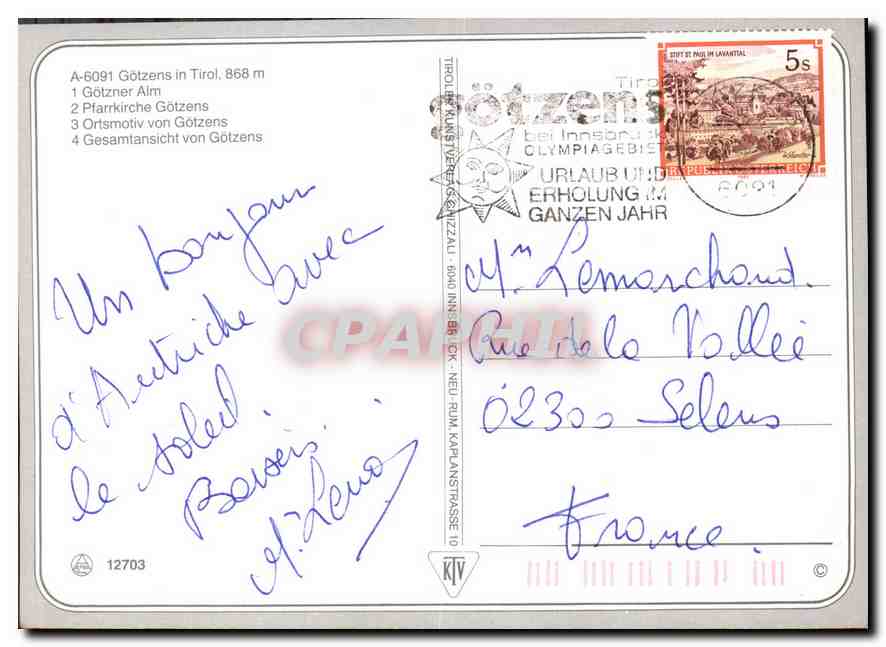 A-6091 Götzens in Tirol, 868 m
1 Götzner Alm
2 Pfarrkirche Götzens
3 Ortsmotiv von Götzens
4 Gesamtansicht von Götzens
Un bonjour
d'Autriche avec
le soleil.
Baisers.
12703
TIROLER KUNSTVERLAG CHIZZALI · 6040 INNSBRUCK - NEU-RUM, KAPLANSTRASSE 10
KTV
STIFT ST. PAUL IM LAVANTTAL
5 S
REPUBLIK ÖSTERREICH
Tirol
götzens
bei Innsbruck
OLYMPIAGEBIET
URLAUB UND
ERHOLUNG IM
GANZEN JAHR
6091
Mm Lemarchand.
Rue de la Vallée
02300 Selens
France.
©
CPAPHIL